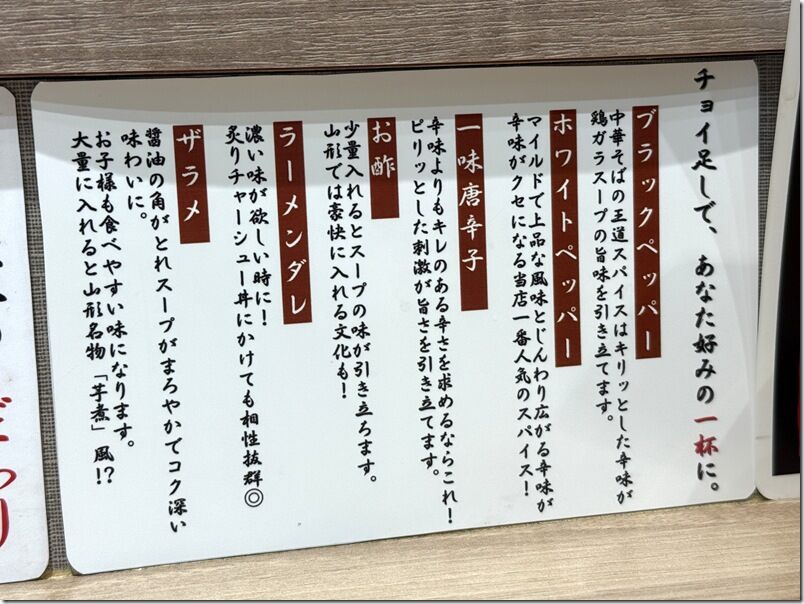 チョイ足しで、あなた好みの一杯に。
ブラックペッパー
中華そばの王道スパイスはキリッとした辛味が
鶏ガラスープの旨味を引き立てます。
ホワイトペッパー
マイルドで上品な風味とじんわり広がる辛味が
辛味がクセになる当店一番人気のスパイス！
一味唐辛子
辛味よりもキレのある辛さを求めるならこれ！
ピリッとした刺激が旨さを引き立てます。
お酢
少量入れるとスープの味が引き立ちます。
山形では豪快に入れる文化も！
ラーメンダレ
濃い味が欲しい時に！
炙りチャーシュー丼にかけても相性抜群◎
ザラメ
醤油の角がとれスープがまろやかでコク深い
味わいに。
お子様も食べやすい味になります。
大量に入れると山形名物「芋煮」風！？